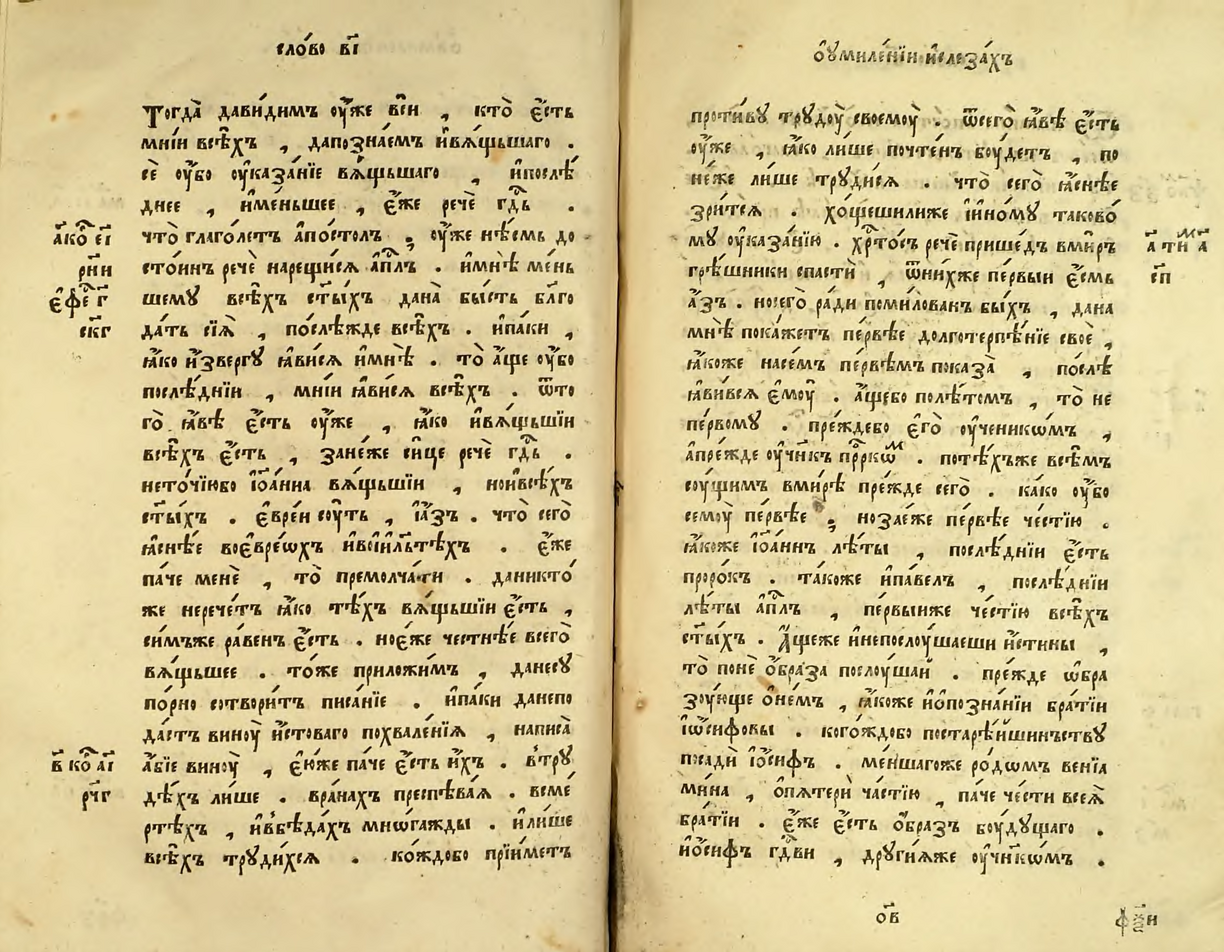 сло́во в҃і
Тогда̀ дави́димъ оу҆́же вси , кто̀ є҆́сть
мні́и всѣ́хъ , дапозна́емъ и҆вѧ́щьшаго .
сѐ оу҆́бо оу҆каза́нїе вѧ́щьшаго , и҆послѣ́
днее , и҆ме́ньшее , є҆́же речѐ гдⷭ҇ь .
а҃ коⷬ҇ е҃і
что̀ глаго́летъ а҆по́столъ , оу҆́же нѣ́смь до
рни
сто́инъ речѐ нарещи́сѧ а҆пⷭ҇лъ . и҆мнѣ̀ ме́нь
є҆фе́ г҃
шемꙋ̀ всѣ́хъ ст҃ы́хъ дана̀ бы́сть бл҃го
скг
да́ть сїѧ̀ , послѣ́жде всѣ́хъ . и҆па́ки ,
ꙗ҆́ко и҆́звергꙋ ꙗ҆ви́сѧ и҆мнѣ̀ . то̀ а҆́ще оу҆́бо
послѣ́днїи , мні́и ꙗ҆ви́сѧ всѣ́хъ . ѿто
го̀ ꙗ҆́вѣ є҆́сть оу҆́же , ꙗ҆́ко и҆вѧ́щьшїи
всѣ́хъ є҆́сть , зане́же си́це речѐ гдⷭ҇ь .
нето́чїюбо і҆ѡа́нна вѧ́щьшїи , нои҆всѣ́хъ
ст҃ы́хъ . є҆вре́и соу́ть , і҆а҆́зъ . что̀ сего̀
ꙗ҆́снѣе воє҆вре́ѡхъ и҆вои҆и҃лтѣхъ . є҆́же
па́че менѐ , то̀ премолча́ти . даникто́
же нерече́тъ ꙗ҆́ко тѣ́хъ вѧ́щьшїи є҆́сть ,
си́мъже ра́венъ є҆́сть . ное҆́же честнѣ́е всего̀
вѧ́щьшее . то́же приложи́мъ , данесꙋ
по́рно сотвори́тъ писа́нїе . и҆па́ки данепо
да́стъ виноу̀ и҆́стоваго похвале́нїѧ , написа̀
в҃ коⷬ҇ а҃і
а҆́бїе виноу̀ , є҆ю́же па́че є҆́сть и҆́хъ . втрꙋ
рчг
дѣ́хъ ли́ше . вра́нахъ преспѣва́ѧ . всме
ртѣхъ , и҆вбѣда́хъ мнѡга́жды . и҆ли́ше
всѣ́хъ трꙋди́хсѧ . ко́ждобо прїи́метъ
оу҆миле́нїи и҆слеза́хъ
проти́вꙋ трꙋдоу̀ своемоу̀ . ѿсего̀ ꙗ҆́вѣ є҆́сть
оу҆́же , ꙗ҆́ко ли́ше почте́нъ боу́детъ , по
не́же ли́ше трꙋди́сѧ . что̀ сего̀ ꙗ҆́снѣе
зри́тсѧ . хо́щешилиже і҆и҆но́мꙋ таково́
мꙋ оу҆каза́нїю . хрⷭ҇то́съ речѐ прише́дъ вми́ръ
а҃ тим а҃
грѣ́шники спастѝ , ѿни́хже пе́рвыи є҆́смь
сп
а҆́зъ . носего̀ ра́ди поми́лованъ бы́хъ , дана
мнѣ̀ пока́жетъ пе́рвѣе долготерпѣ́нїе своѐ ,
ꙗ҆́коже насе́мъ пе́рвѣмъ показа̀ , послѣ́
ꙗ҆ви́всѧ є҆моу̀ . а҆́щебо полѣ́томъ , то̀ не
пе́рвомꙋ . пре́ждебо є҆го̀ оу҆ченикѡ́мъ ,
а҆пре́жде оу҆чн҃къ прⷪ҇ркѡⷨ . потѣ́хъже всѣ́мъ
соу́щимъ вми́рѣ пре́жде сего̀ . ка́ко оу҆́бо
семоу̀ пе́рвѣе , нозає҆́же пе́рвѣе че́стїю .
ꙗ҆́коже і҆ѡа́ннъ лѣ́ты , послѣ́днїи є҆́сть
проро́къ . та́коже и҆па́велъ , послѣ́днїи
лѣ́ты а҆пⷭ҇лъ , пе́рвыиже че́стїю всѣ́хъ
ст҃ы́хъ . А҆́щеже и҆непослоу́шаеши и҆́стины ,
то̀ понѐ о҆́браза послоу́шаи . пре́жде ѡ҆бра
зоу́юще о҆не́мъ , ꙗ҆́коже и҆о҆позна́нїи бра́тїи
і҆ѡ́сифовы . кого́ждобо постарѣ́йшинъствꙋ
посадѝ і҆о́сифъ . ме́ншагоже ро́дѡмъ венїа
ми́на , о҆пѧтерѝ ча́стїю , па́че че́сти всеѧ̀
бра́тїи . є҆́же є҆́сть о҆́бразъ боу́дꙋщаго .
и҆о́сифъ гдⷭ҇ви , дрꙋги́ѧже оу҆чн҃кѡ́мъ .
ов